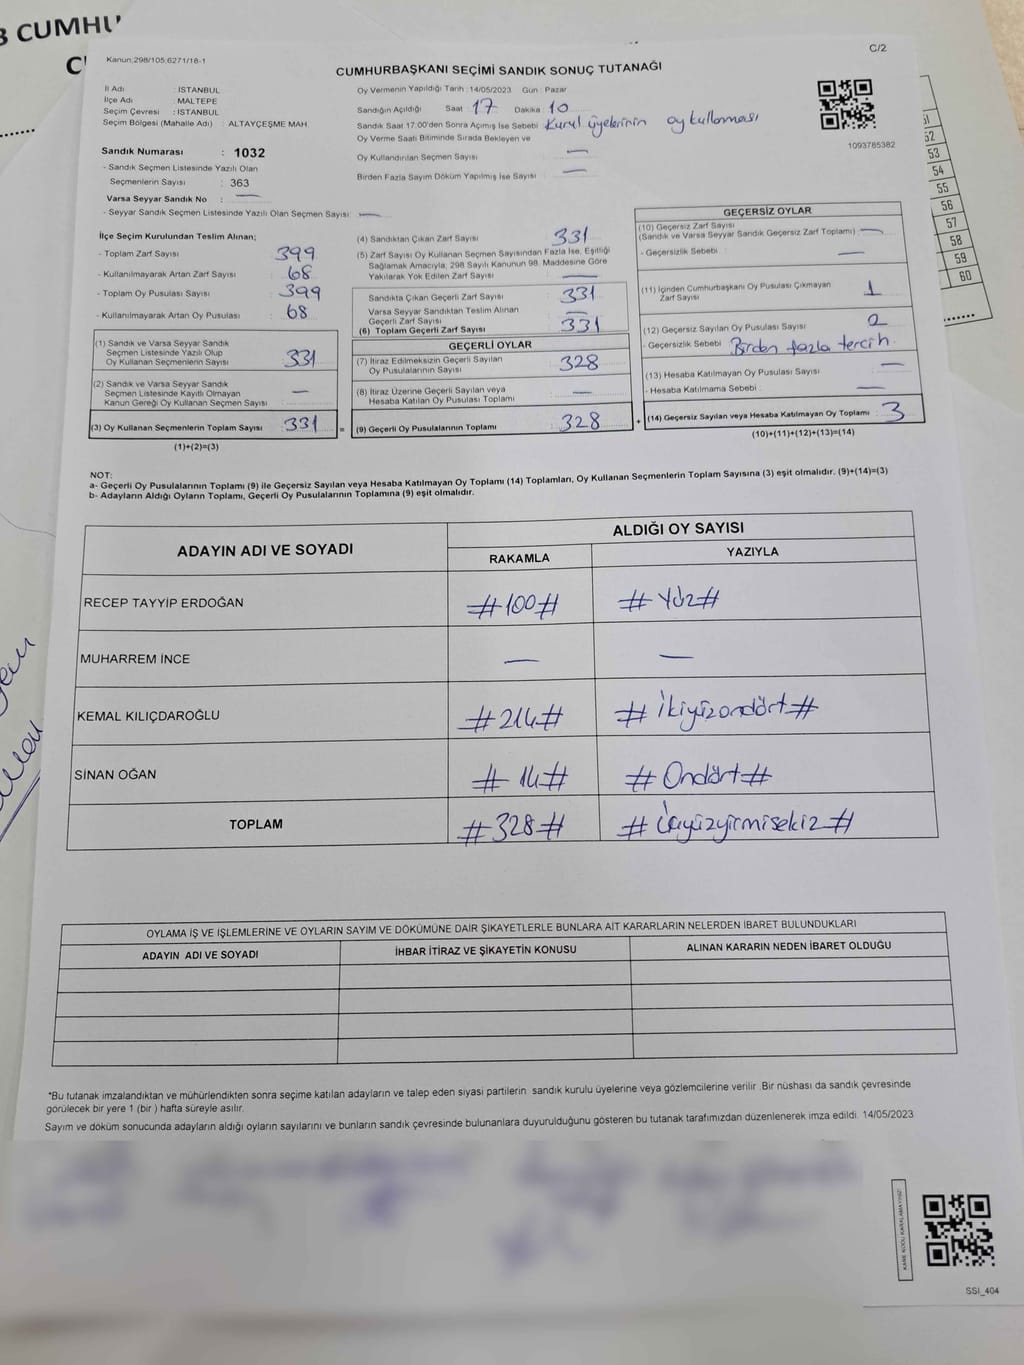 B CUMHU
C
C/2
Kanun:298/105;6271/18-1
CUMHURBAŞKANI SEÇİMİ SANDIK SONUÇ TUTANAĞI
İl Adı : İSTANBUL
İlçe Adı : MALTEPE
Seçim Çevresi : İSTANBUL
Seçim Bölgesi (Mahalle Adı) : ALTAYÇEŞME MAH.
Oy Vermenin Yapıldığı Tarih : 14/05/2023 Gün : Pazar
Sandığın Açıldığı Saat 17 Dakika : 10
Sandık Saat 17:00'den Sonra Açımış İse Sebebi Kurul üyelerinin oy kullanması
Oy Verme Saati Bitiminde Sırada Bekleyen ve
Oy Kullandırılan Seçmen Sayısı : —
Birden Fazla Sayım Döküm Yapılmış İse Sayısı : —
1093785382
Sandık Numarası : 1032
- Sandık Seçmen Listesinde Yazılı Olan
Seçmenlerin Sayısı : 363
Varsa Seyyar Sandık No : —
- Seyyar Sandık Seçmen Listesinde Yazılı Olan Seçmen Sayısı : —
İlçe Seçim Kurulundan Teslim Alınan;
- Toplam Zarf Sayısı : 399
- Kullanılmayarak Artan Zarf Sayısı : 68
- Toplam Oy Pusulası Sayısı : 399
- Kullanılmayarak Artan Oy Pusulası : 68
(1) Sandık ve Varsa Seyyar Sandık
Seçmen Listesinde Yazılı Olup
Oy Kullanan Seçmenlerin Sayısı : 331
(2) Sandık ve Varsa Seyyar Sandık
Seçmen Listesinde Kayıtlı Olmayan
Kanun Gereği Oy Kullanan Seçmen Sayısı : —
(3) Oy Kullanan Seçmenlerin Toplam Sayısı : 331 =
(1)+(2)=(3)
(4) Sandıktan Çıkan Zarf Sayısı : 331
(5) Zarf Sayısı Oy Kullanan Seçmen Sayısından Fazla İse, Eşitliği
Sağlamak Amacıyla, 298 Sayılı Kanunun 98. Maddesine Göre
Yakılarak Yok Edilen Zarf Sayısı : —
Sandıkta Çıkan Geçerli Zarf Sayısı : 331
Varsa Seyyar Sandıktan Teslim Alınan
Geçerli Zarf Sayısı : —
(6) Toplam Geçerli Zarf Sayısı : 331
GEÇERLİ OYLAR
(7) İtiraz Edilmeksizin Geçerli Sayılan
Oy Pusulalarının Sayısı : 328
(8) İtiraz Üzerine Geçerli Sayılan veya
Hesaba Katılan Oy Pusulası Toplamı : —
(9) Geçerli Oy Pusulalarının Toplamı : 328 +
GEÇERSİZ OYLAR
(10) Geçersiz Zarf Sayısı
(Sandık ve Varsa Seyyar Sandık Geçersiz Zarf Toplamı) : —
- Geçersizlik Sebebi : —
(11) İçinden Cumhurbaşkanı Oy Pusulası Çıkmayan
Zarf Sayısı : 1
(12) Geçersiz Sayılan Oy Pusulası Sayısı : 2
- Geçersizlik Sebebi : Birden fazla tercih.
(13) Hesaba Katılmayan Oy Pusulası Sayısı : —
- Hesaba Katılmama Sebebi : —
(14) Geçersiz Sayılan veya Hesaba Katılmayan Oy Toplamı : 3
(10)+(11)+(12)+(13)=(14)
51
52
53
54
55
56
57
58
59
60
NOT:
a- Geçerli Oy Pusulalarının Toplamı (9) ile Geçersiz Sayılan veya Hesaba Katılmayan Oy Toplamı (14) Toplamları, Oy Kullanan Seçmenlerin Toplam Sayısına (3) eşit olmalıdır. (9)+(14)=(3)
b- Adayların Aldığı Oyların Toplamı, Geçerli Oy Pusulalarının Toplamına (9) eşit olmalıdır.
ADAYIN ADI VE SOYADI
ALDIĞI OY SAYISI
RAKAMLA YAZIYLA
RECEP TAYYİP ERDOĞAN #100# #Yüz#
MUHARREM İNCE — —
KEMAL KILIÇDAROĞLU #214# #İkiyüzondört#
SİNAN OĞAN #14# #Ondört#
TOPLAM #328# #Üçyüzyirmisekiz#
OYLAMA İŞ VE İŞLEMLERİNE VE OYLARIN SAYIM VE DÖKÜMÜNE DAİR ŞİKAYETLERLE BUNLARA AİT KARARLARIN NELERDEN İBARET BULUNDUKLARI
ADAYIN ADI VE SOYADI İHBAR İTİRAZ VE ŞİKAYETİN KONUSU ALINAN KARARIN NEDEN İBARET OLDUĞU
*Bu tutanak imzalandıktan ve mühürlendikten sonra seçime katılan adayların ve talep eden siyasi partilerin sandık kurulu üyelerine veya gözlemcilerine verilir. Bir nüshası da sandık çevresinde
görülecek bir yere 1 (bir ) hafta süreyle asılır.
Sayım ve döküm sonucunda adayların aldığı oyların sayılarını ve bunların sandık çevresinde bulunanlara duyurulduğunu gösteren bu tutanak tarafımızdan düzenlenerek imza edildi. 14/05/2023
KARE KODU KARALAMAYINIZ!
SSI_404